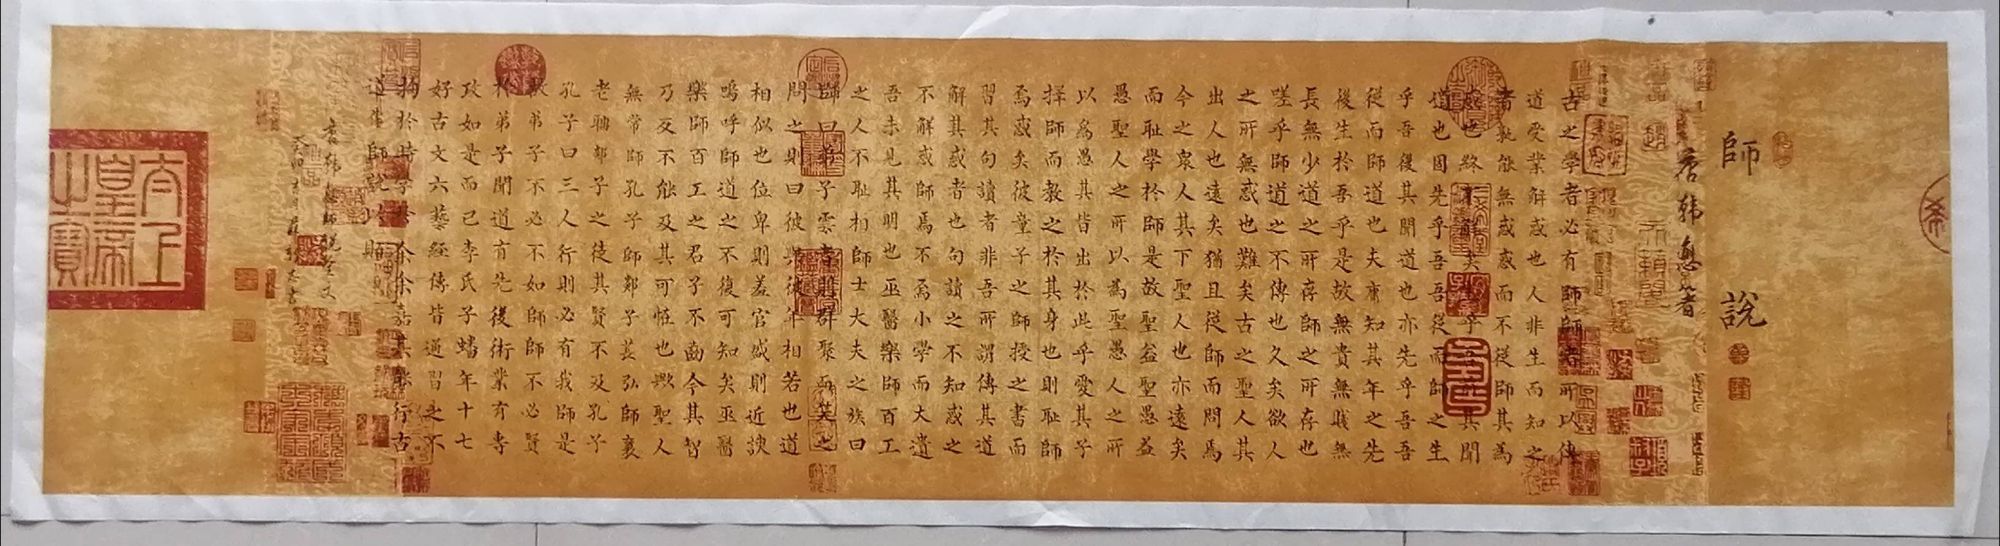 師說
唐韓愈著
古之學者必有師師者所以傳
道受業解惑也人非生而知之
者孰能無惑惑而不從師其為
惑也終不解矣生乎吾前其聞
道也固先乎吾吾從而師之生
乎吾後其聞道也亦先乎吾吾
從而師道也夫庸知其年之先
後生於吾乎是故無貴無賤無
長無少道之所存師之所存也
嗟乎師道之不傳也久矣欲人
之所無惑也難矣古之聖人其
出人也遠矣猶且從師而問焉
今之眾人其下聖人也亦遠矣
而恥學於師是故聖益聖愚益
愚聖人之所以為聖愚人之所
以為愚其皆出於此乎愛其子
擇師而教之於其身也則恥師
焉惑矣彼童子之師授之書而
習其句讀者非吾所謂傳其道
解其惑者也句讀之不知惑之
不解惑師焉不焉小學而大遺
吾未見其明也巫醫樂師百工
之人不恥相師士大夫之族曰
師曰弟子雲者則群聚而笑之
問之則曰彼與彼年相若也道
相似也位卑則羞官盛則近諛
嗚呼師道之不復可知矣巫醫
樂師百工之君子不齒今其智
乃反不能及其可怪也歟聖人
無常師孔子師郯子萇弘師襄
老聃郯子之徒其賢不及孔子
孔子曰三人行則必有我師是
故弟子不必不如師師不必賢
於弟子聞道有先後術業有專
攻如是而已李氏子蟠年十七
好古文六藝經傳皆通習之不
拘於時學於余余嘉其能行古
道作師說以貽
唐韓愈師說全文
太上皇帝之寶